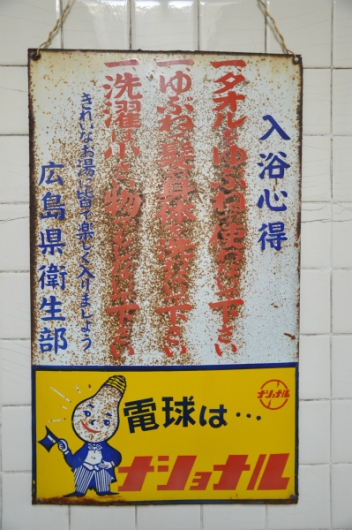 入浴心得
一タオルをゆぶねで使わないで下さい
一ゆぶねで髪、身体を洗わないで下さい
一洗濯は小さい物でもしないで下さい
きれいなお湯に皆で楽しく入りましょう
広島県衛生部
ナショナル
電球は…
ナショナル